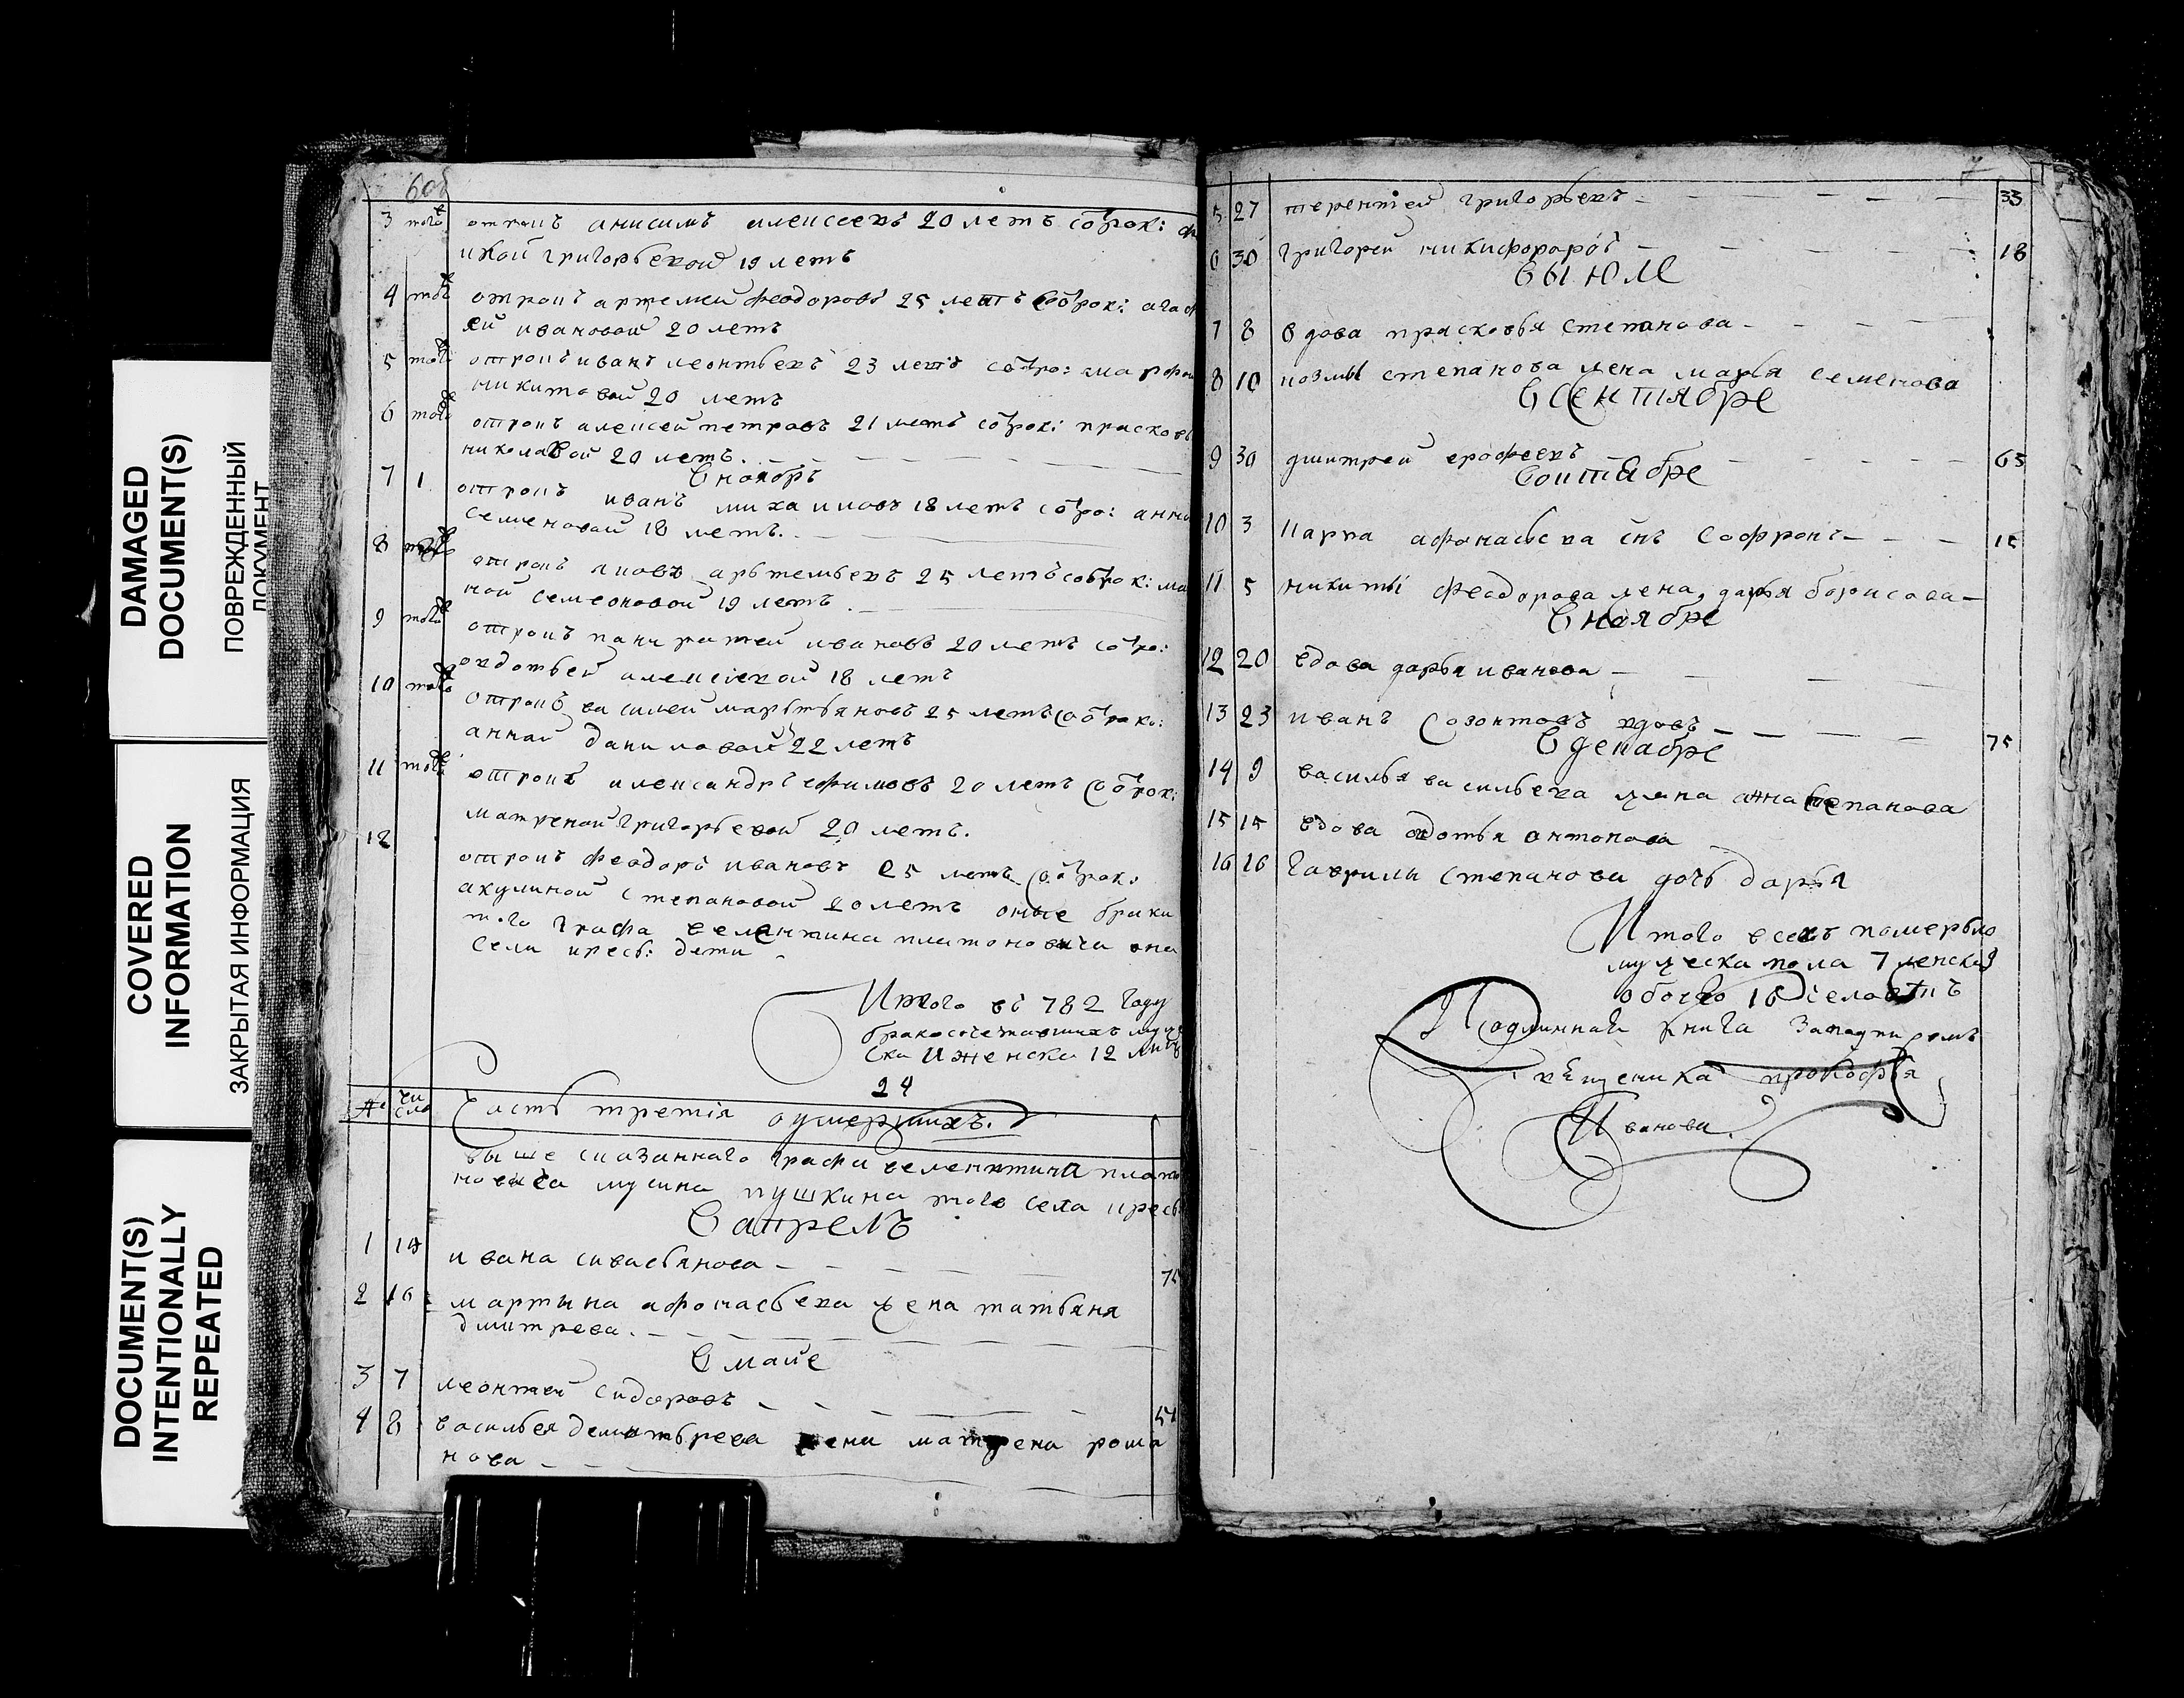 DAMAGED
DOCUMENT(S)
ПОВРЕЖДЕННЫЙ
ДОКУМЕНТ
COVERED
INFORMATION
ЗАКРЫТАЯ ИНФОРМАЦИЯ
DOCUMENT(S)
INTENTIONALLY
REPEATED
60б
3 того отрокъ анисимъ алексеевъ 20 летъ сотрок:
григорьевой 19 летъ
4 того отрокъ артемей феодоровъ 25 летъ сотрок: агаф
ей ивановой 20 летъ
5 того отрокъ иванъ леонтьевъ 23 летъ сотро: марфои
никитовой 20 летъ
6 того отрокъ алексей петровъ 21 летъ сотрок: прасковь
николавой 20 летъ.
В ноябрѣ
7 1 отрокъ иванъ михаиловъ 18 летъ сотро: анно
семеновой 18 летъ.
8 того отрокъ яковъ арьтемьевъ 25 летъ сотрок: ма
ной семеоновой 19 летъ
9 того отрокъ панкратей ивановъ 20 летъ сотро:
овдотьей алексеевой 18 летъ
10 того отрокъ василей мартьяновъ 25 летъ сотроко:
анной даниловой 22 летъ
11 того отрокъ александръ ефимовъ 20 летъ сотрок:
матреной григорьевой 20 летъ.
12 отрокъ феодоръ ивановъ 25 летъ сотрок:
акулиной степановой 20 летъ оные браки
того графа велентина платоновича она
села кресь: дети
Итого въ 782 году
бракосочетавшихъ муж
ска и женска 12
24
№ чи
сла Часть третія оумершихъ.
выше сказаннаго графа велентина плато
новича мусина пушкина того села кресь
В апрелѣ
1 14 ивана сивастьянова 75
2 16 мартына афонасьева жена татьяна
дмитрева.
В маие
3 7 леонтей сидоровъ 54
4 8 василья демитьрева жена матрена рома
нова
7
5 27 терентей григорьевъ 33
6 30 григорей никифоровъ 18
В ыюле
7 8 вдова прасковья степанова
8 10 козмы степанова жена марья семенова
В сентябре
9 30 дмитрей ерофеевъ 65
В октябре
10 3 карпа афонасьева снъ софронъ 15
11 5 никиты феодорова жена дарья борисова
В ноябре
12 20 вдова дарья иванова
13 23 иванъ созонтовъ вдовъ 75
В декабре
14 9 василья васильева жена анна степанова
15 15 вдова овдотья антонова
16 16 гаврилы степанова дочь дарья
Итого всехъ померьло
мужеска пола 7 женска 9
обоего 16 человекъ
Подлинная книга за
священика прокофья
Иванова.